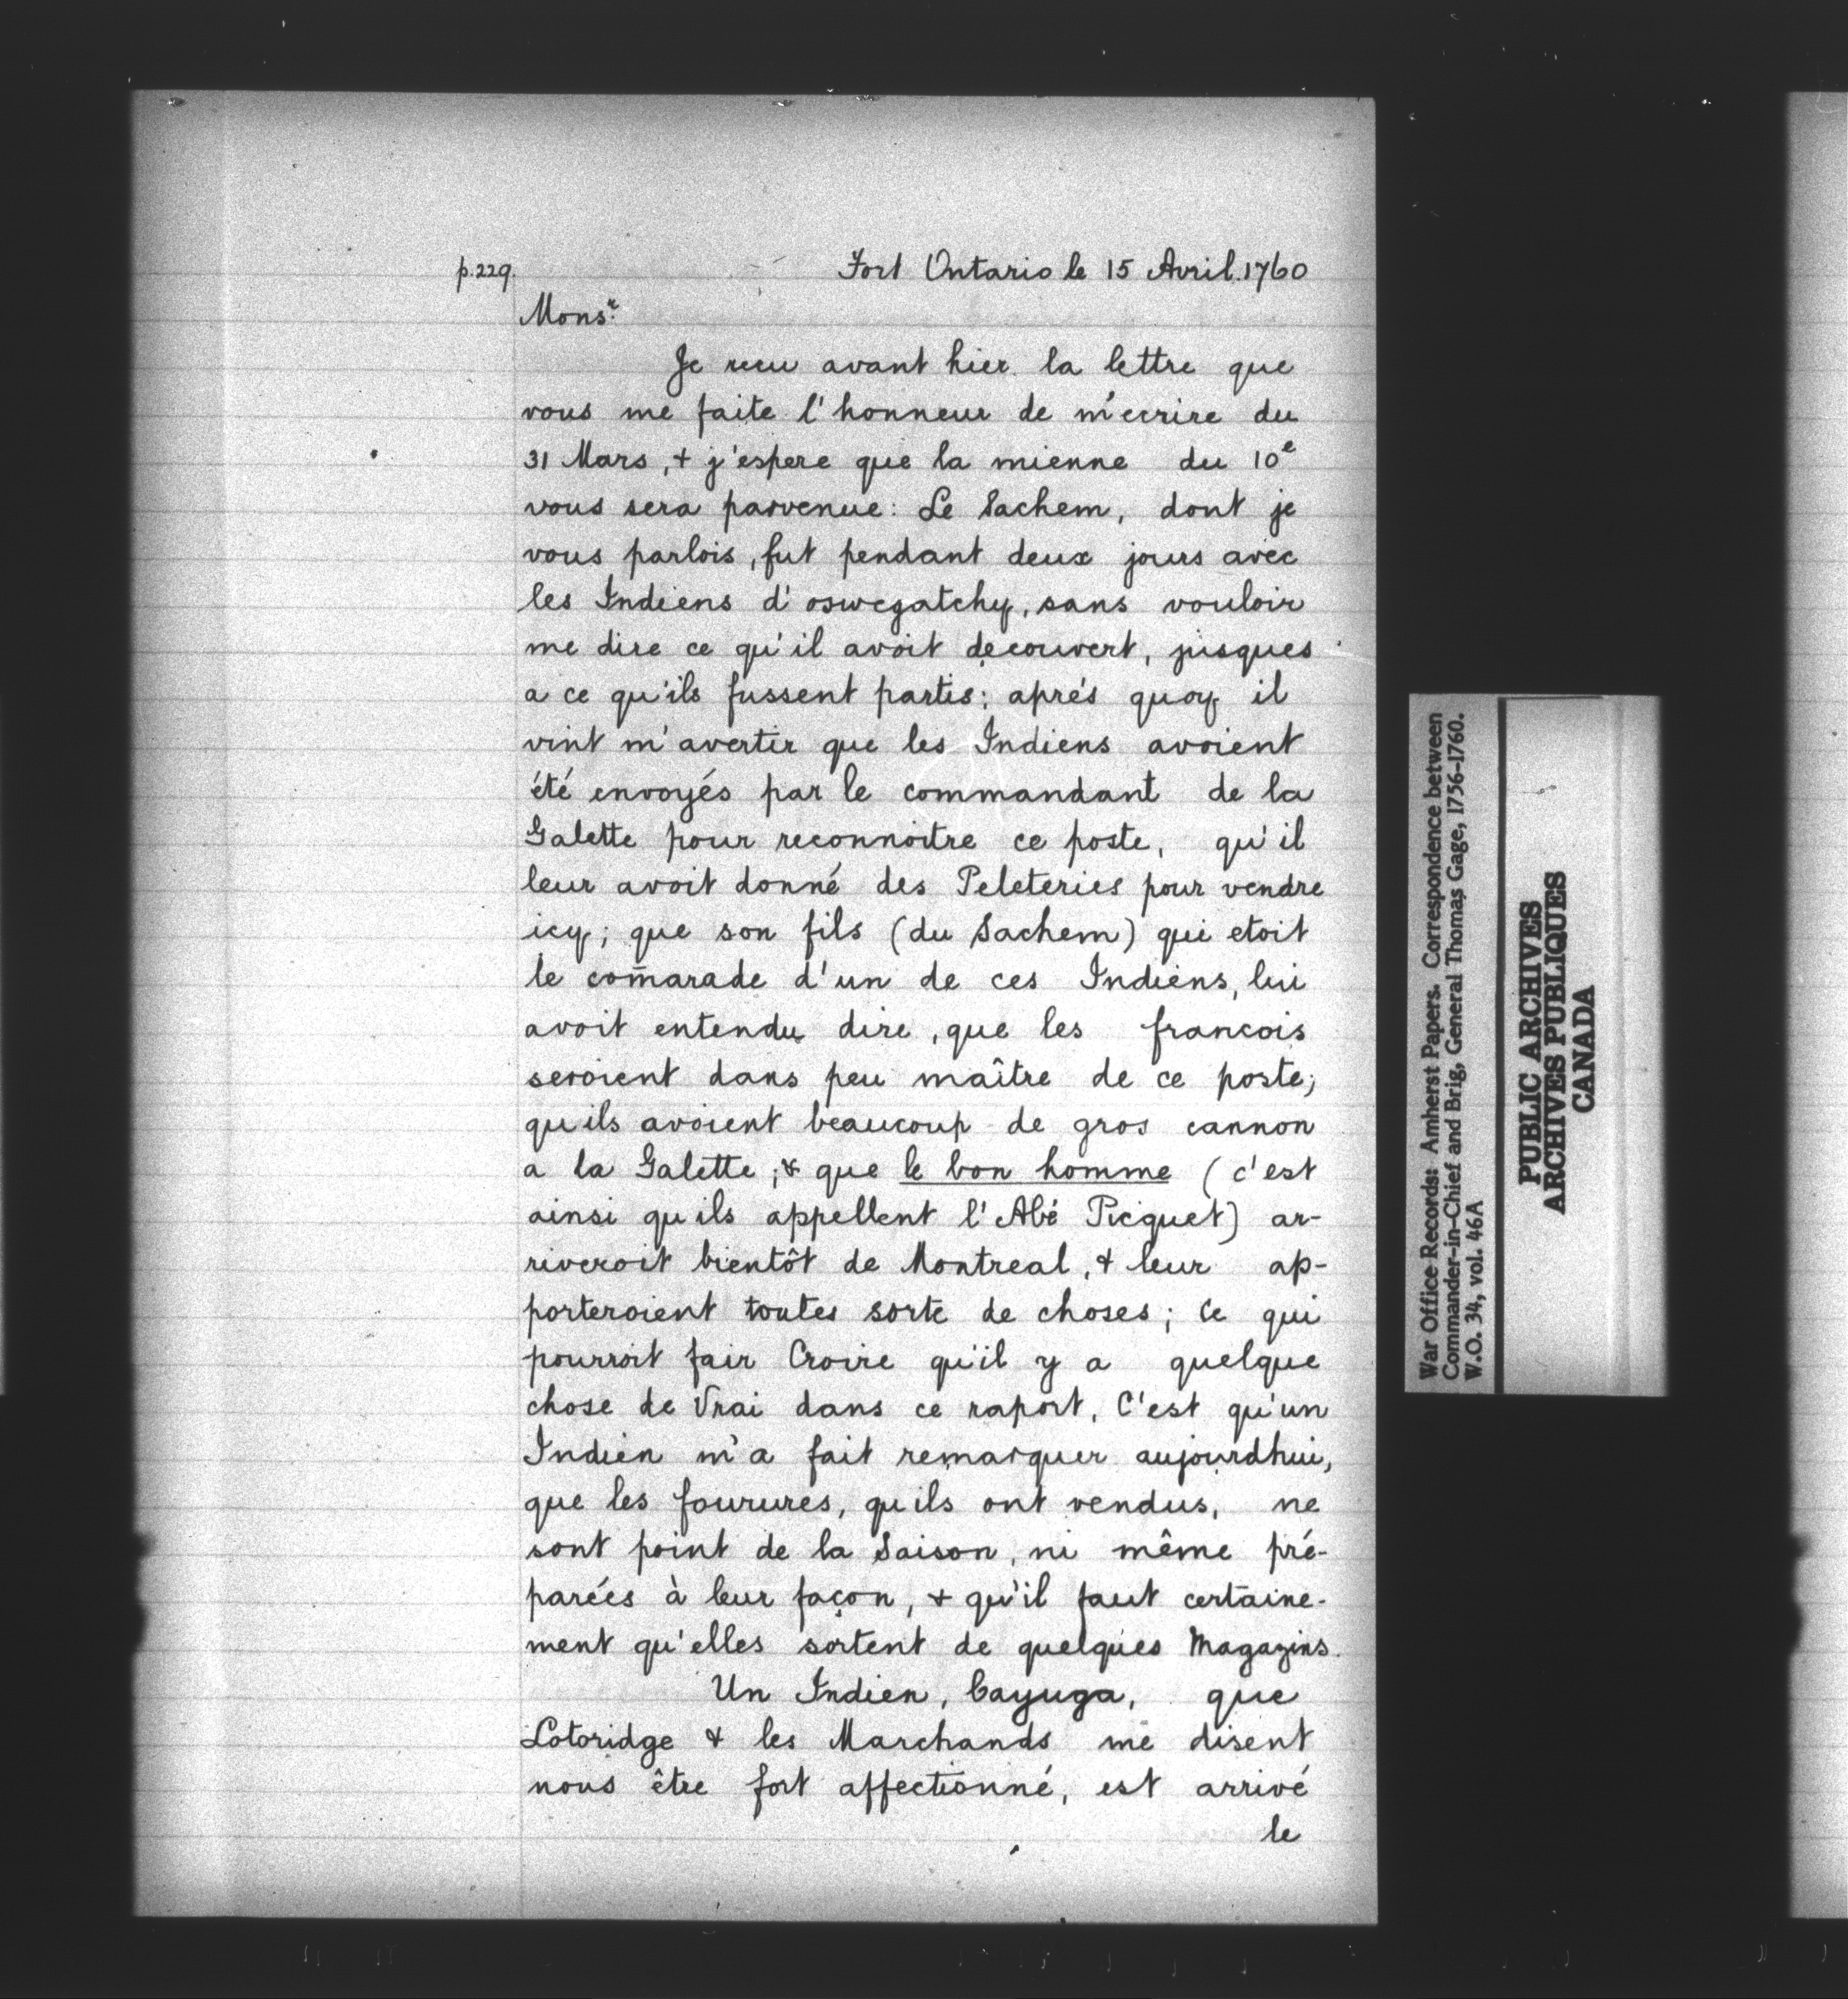 p.229. Fort Ontario le 15 Avril.1760
Mons.r
Je recu avant hier la lettre que
vous me faite l'honneur de m'ecrire du
31 Mars, + j'espere que la mienne du 10e
vous sera parvenue: Le Sachem, dont je
vous parlois, fut pendant deux jours avec
les Indiens d'oswegatchy, sans vouloir
me dire ce qu'il avoit decouvert, jusques
a ce qu'ils fussent partis; aprés quoy il
vint m'avertir que les Indiens avoient
été envoyés par le commandant de la
Galette pour reconnoitre ce poste, qu'il
leur avoit donné des Peleteries pour vendre
icy; que son fils (du Sachem) qui etoit
le com̄arade d'un de ces Indiens, lui
avoit entendu dire, que les francois
seroient dans peu maître de ce poste;
qu'ils avoient beaucoup de gros cannon
a la Galette; & que le bon homme (c'est
ainsi qu'ils appellent l'Abé Picquet) ar-
riveroit bientôt de Montreal, & leur ap-
porteroient toutes sorte de choses; Ce qui
pourroit fair Croire qu'il y a quelque
chose de Vrai dans ce raport, C'est qu'un
Indien m'a fait remarquer aujourdhui,
que les fourures, qu'ils ont vendus, ne
sont point de la Saison, ni même pré-
parées à leur façon, + qu'il faut certaine-
ment qu'elles sortent de quelques Magazins.
Un Indien, Cayuga, que
Lotoridge & les Marchands me disent
nous être fort affectionné, est arrivé
le
War Office Records: Amherst Papers. Correspondence between
Commander-in-Chief and Brig. General Thomas Gage, 1756-1760.
W.O. 34, vol. 46A
PUBLIC ARCHIVES
ARCHIVES PUBLIQUES
CANADA